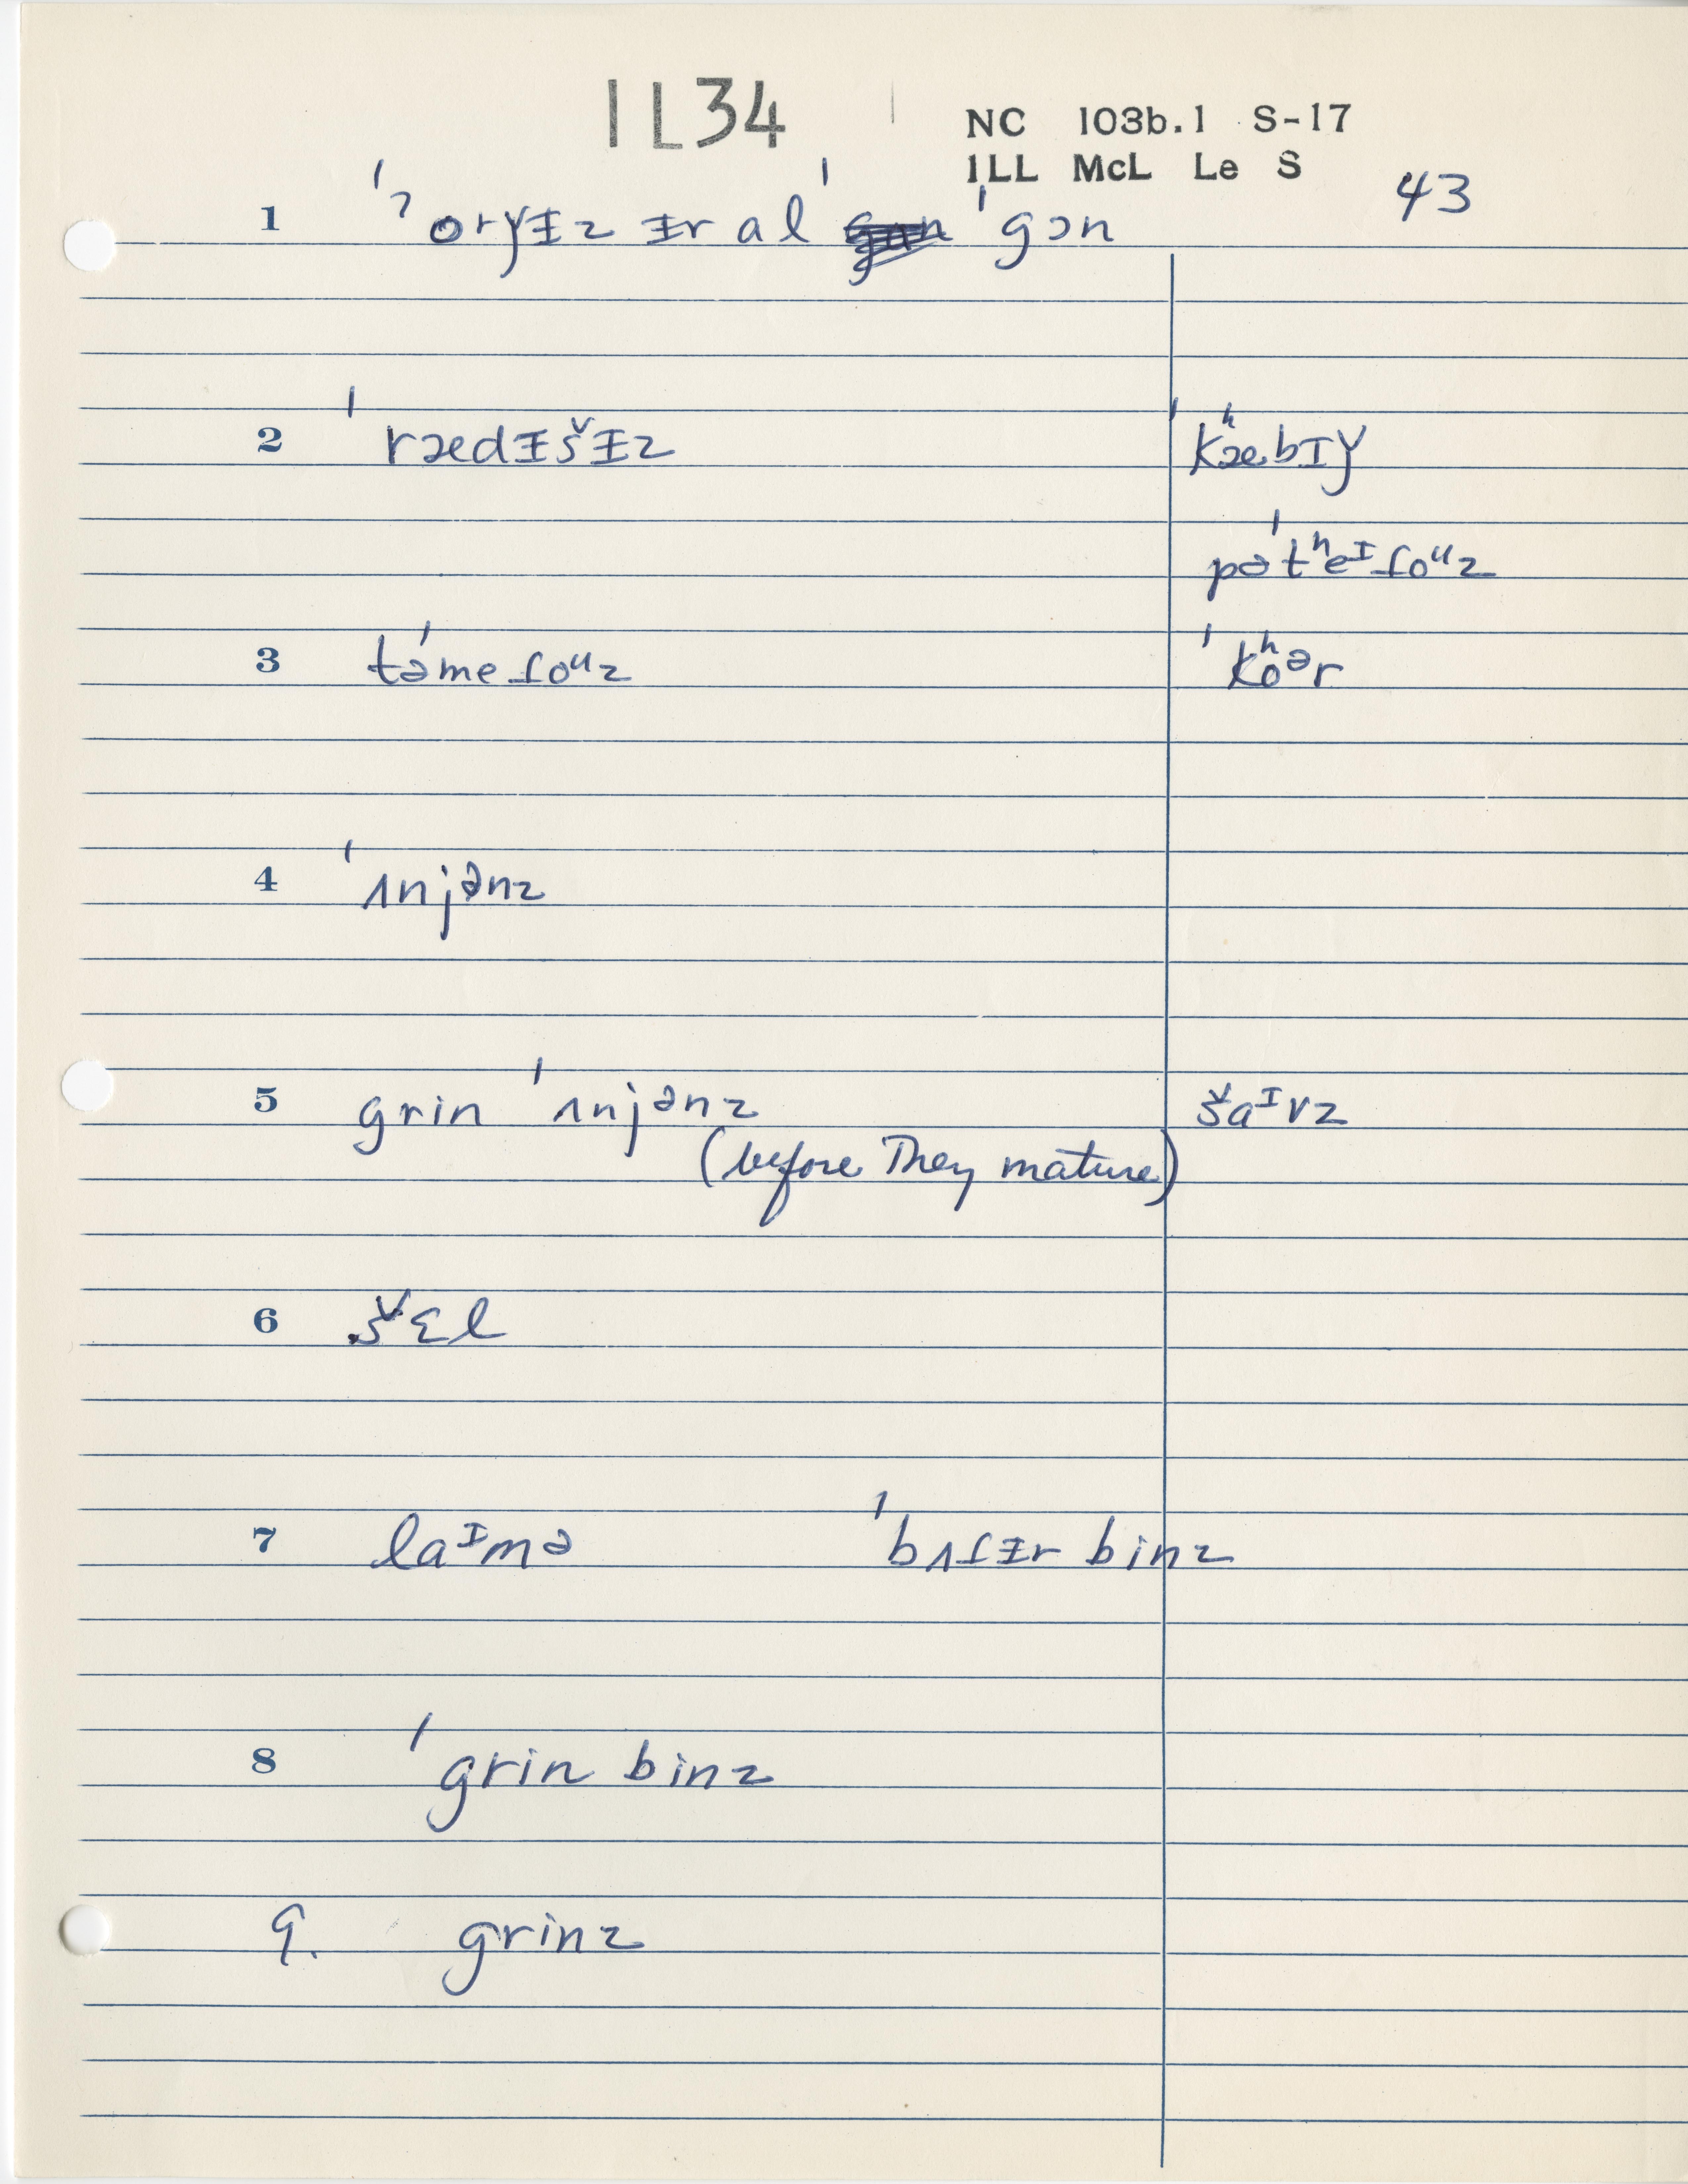 1L34
NC 103b.1 S-17
1LL McL Le S
43
1 ˈˀorǰᵻz ᵻr al ˈgɔn
2 ˈrædᵻšᵻz ˈkʰæbɪǰ
pəˈtʰeᶦɾoᵘz
3 təˈmeɾoᵘz ˈkʰoᵊr
4 ˈʌnjənz
5 grin ˈʌnjənz šaᶦvz
(before they mature)
6 šɛl
7 laᶦmə ˈbʌɾᵻr binz
8 ˈgrin binz
9. grinz